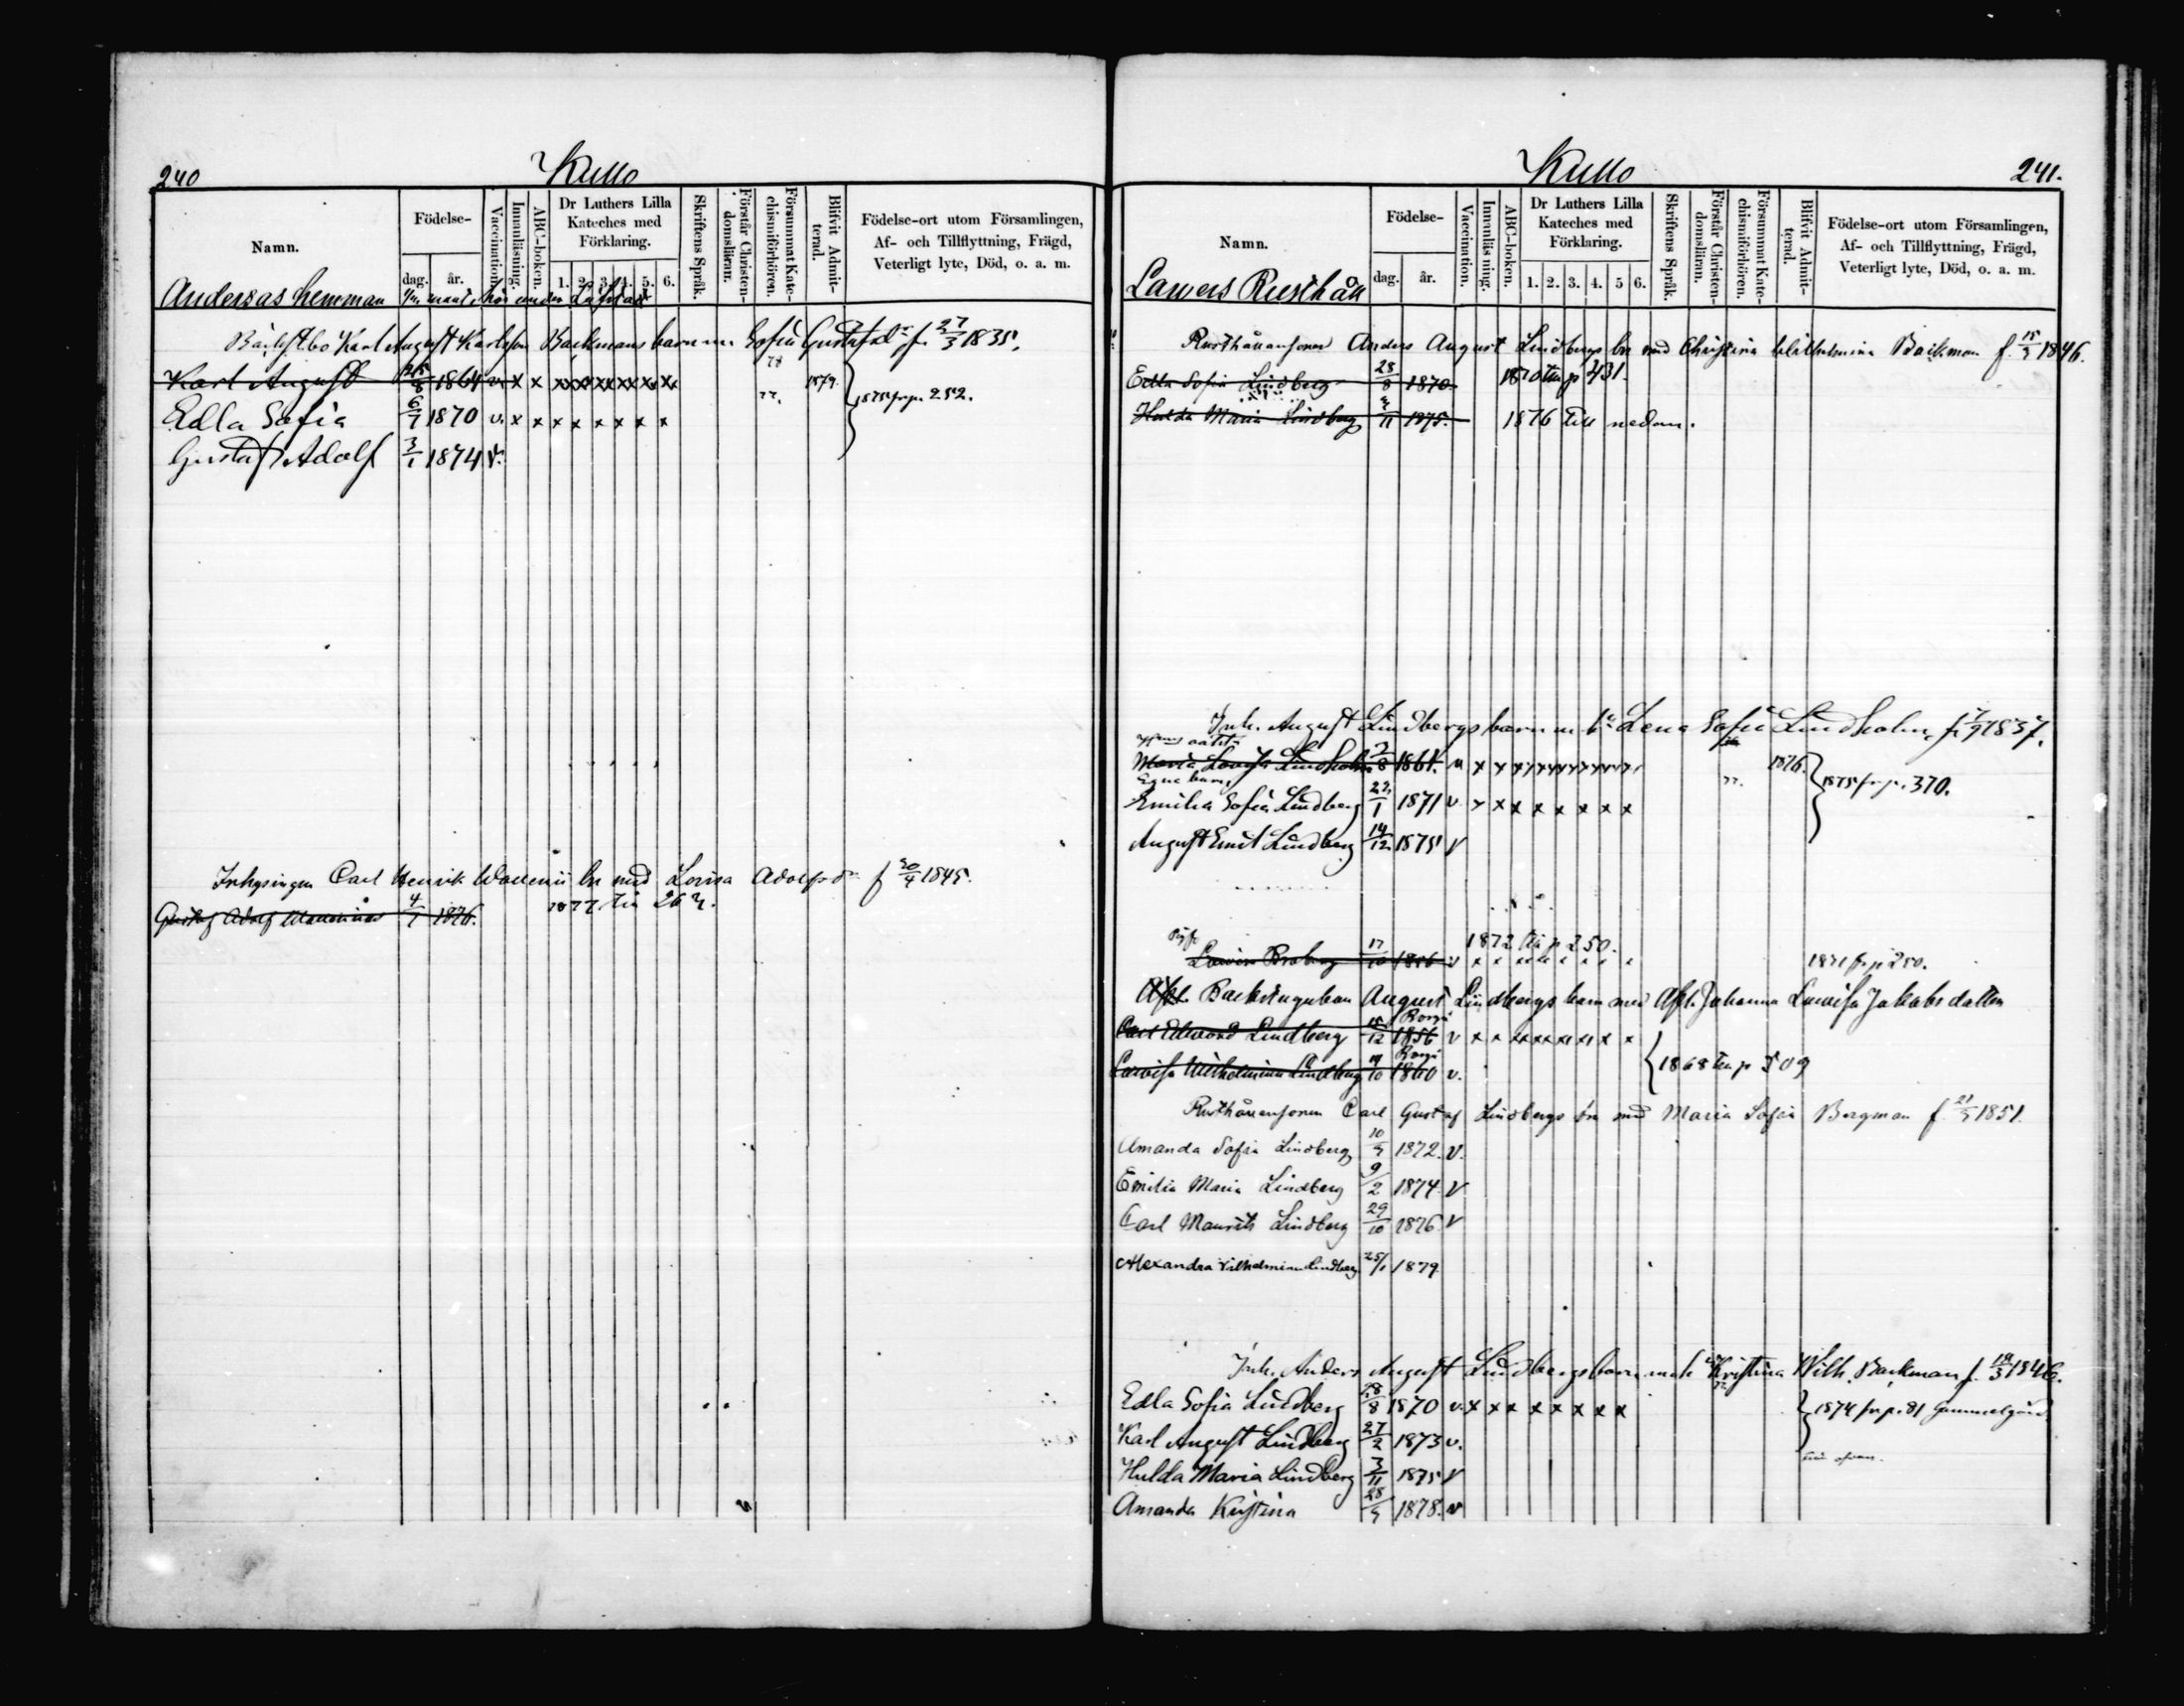 240
Kullo
Namn.
Födelse-
dag. år.
Vaccination.
Innanläsning.
ABC-boken.
Dr Luthers Lilla
Kateches med
Förklaring.
1. 2. 3. 4. 5. 6.
Skriftens Språk.
Förstår Christen-
domsläran.
Försummat Kate-
chismiförhören.
Blifvit Admit-
terad.
Födelse-ort utom Församlingen,
Af- och Tillflyttning, Frägd,
Veterligt lyte, Död, o. a. m.
Andersas hemman
Karl August Karlsson Backmans barn m Sofia Gustafsd:r f. 27/3 1835.
Karl August 25/8 1864 v. x x x x x x x x x 1879.
1875 fr p. 252.
Edla Sofia 6/7 1870 v. x x x x x x x x
Gustaf Adolf 3/1 1874 v.
Inhysingen Carl Henrik Wallenii br med Lovisa Adolfsdr f 30/4 1845.
Gustaf Adolf 4/1 1876. 1877 till
Kullo
241.
Namn.
Födelse-
dag. år.
Vaccination.
Innanläsning.
ABC-boken.
Dr Luthers Lilla
Kateches med
Förklaring.
1. 2. 3. 4. 5 6.
Skriftens Språk.
Förstår Christen-
domsläran.
Försummat Kate-
chismiförhören.
Blifvit Admit-
terad.
Födelse-ort utom Församlingen,
Af- och Tillflyttning, Frägd,
Veterligt lyte, Död, o. a. m.
Larsers Rusthåll
Rusthållaresonen Anders August Lindbergs br med Christina Wilhelmina Backman f. 15/3 1846.
Edla Sofia Lindberg 28/8 1870. 1870 till p 431.
Hulda Maria Lindberg 3/11 1875. 1876 till nedan.
Inh. August Lindbergs barn m h. Lena Sofia Lindholm f. 7/9 1837.
Maria Lovisa Lindholm 3/8 1861. v x x x 1876.
1875 fr p. 370.
Egna barn
Emilia Sofia Lindberg 22/1 1871 v. x x x x x x x x
August Emil Lindberg 14/12 1875 v
1872 till p 250.
Lovisa Broberg 17/10 1856 v x x x x x x x x 1871 fr p 250.
Afl. Backstugukarn August Lindbergs barn med Afl. Johanna Lovisa Jakobsdotter
Carl Edward Lindberg 15/12 Borgå 1856 v x x x x x x x x
Lovisa Wilhelmina Lindberg 19/10 Borgå 1860 v.
1868 till p 509
Rusthållaresonen Carl Gustaf Lindbergs br med Maria Sofia Bergman f. 21/5 1851.
Amanda Sofia Lindberg 10/5 1872. v.
Emilia Maria Lindberg 9/2 1874 v
Carl Maurits Lindberg 29/10 1876 v
Alexandra Vilhelmina Lindberg 25/1 1879
Inh. Anders August Lindbergs barn med Kristina Wilh. Backman f. 18/3 1846.
Edla Sofia Lindberg 28/8 1870 v. x x x x x x x x
1874 fr p. 81 Gammelgård
Karl August Lindberg 27/2 1873 v.
Hulda Maria Lindberg 3/11 1875 v
Amanda Kristina 28/5 1878. v